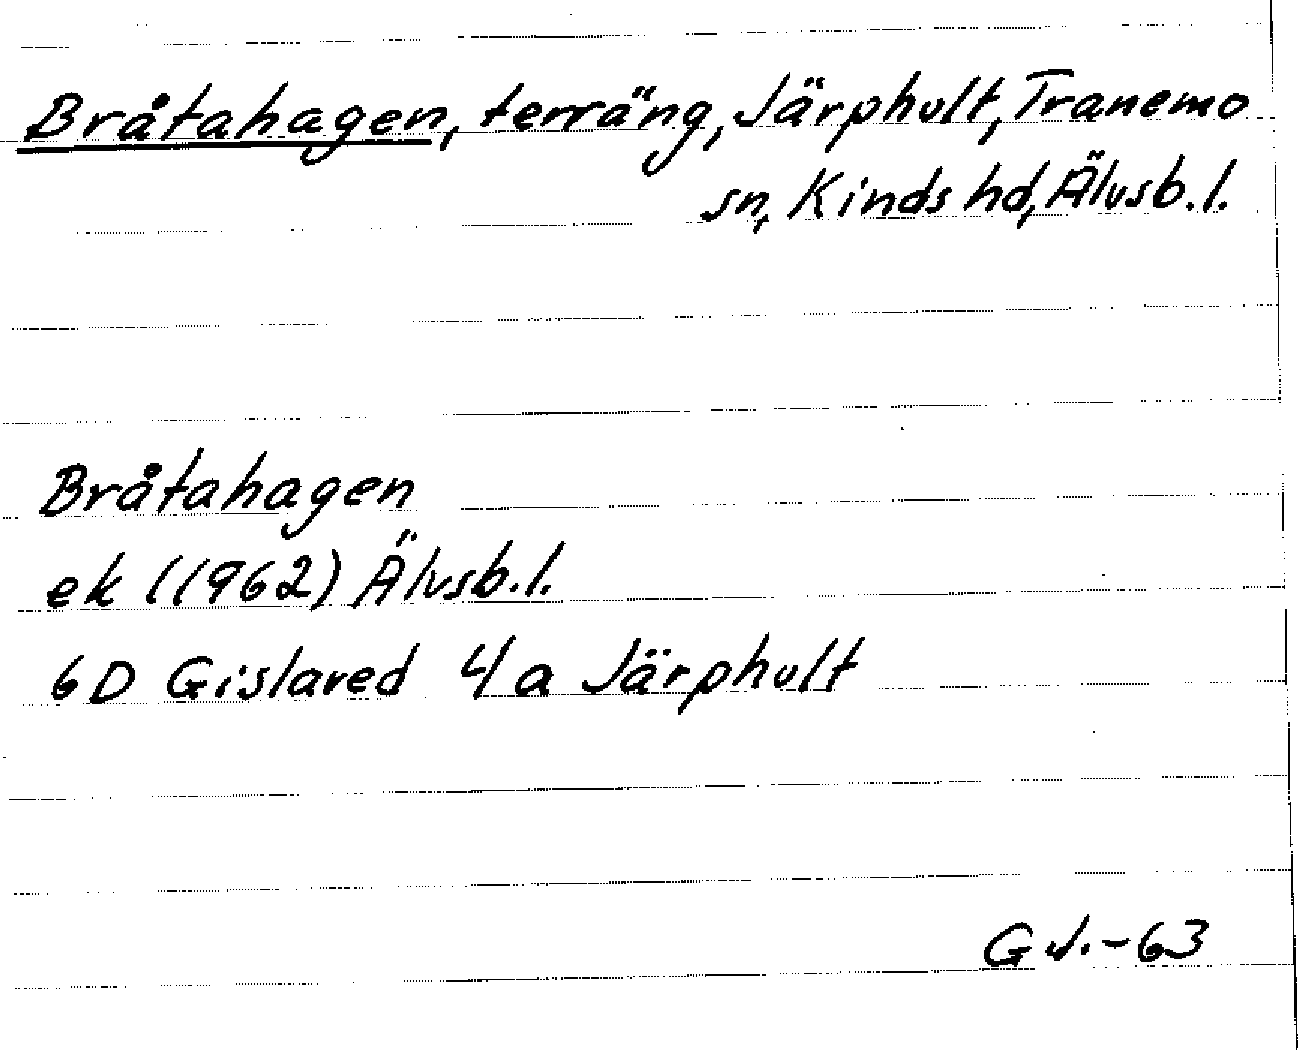 Bråtahagen, terräng, Järphult, Tranemo
sn, Kinds hd, Älvsb.l.
Bråtahagen
ek (1962) Älvsb.l.
6D Gislared 4a Järphult
GJ.-63